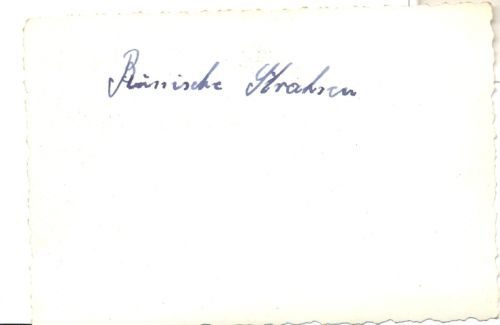 Rüssische Strahsen